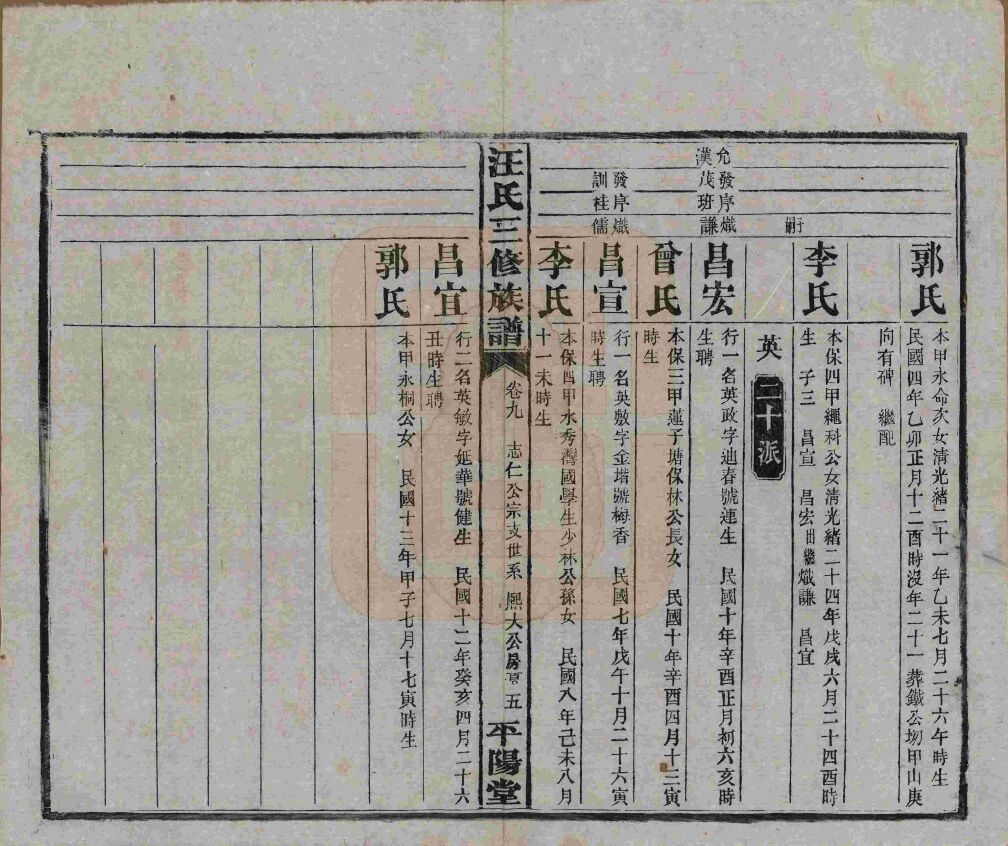 郭氏
本甲永命亥女清光緒二十一年乙未七月二十六午時生
民國四年乙卯正月十二酉時沒年二十一葬鐵公坳甲山庚
向有碑 繼配
于嗣
李氏
本保四甲繩科公女清光緒二十四年戊戌六月二十四酉時
生 子三 昌宣 昌宏出繼熾謙 昌宜
英 二十派
允發序熾
漢茂班謙
昌宏
行一名英政字迪春號連生 民國十年辛酉正月初六亥時
生聘
曾氏
本保三甲蓮子塘保林公長女 民國十年辛酉四月十三寅
時生
發序熾
訓桂儒
昌宣
行一名英敷字金堦號梅香 民國七年戊午十月二十六寅
時生聘
李氏
本保四甲水秀灣國學生少林公孫女 民國八年己未八月
十一未時生
汪氏三修族譜 卷九 志仁公宗支世系 熙大公房 五 平陽堂
昌宜
行二名英敏字延華號健生 民國十二年癸亥四月二十六
丑時生聘
郭氏
本甲永桐公女 民國十三年甲子七月十七寅時生